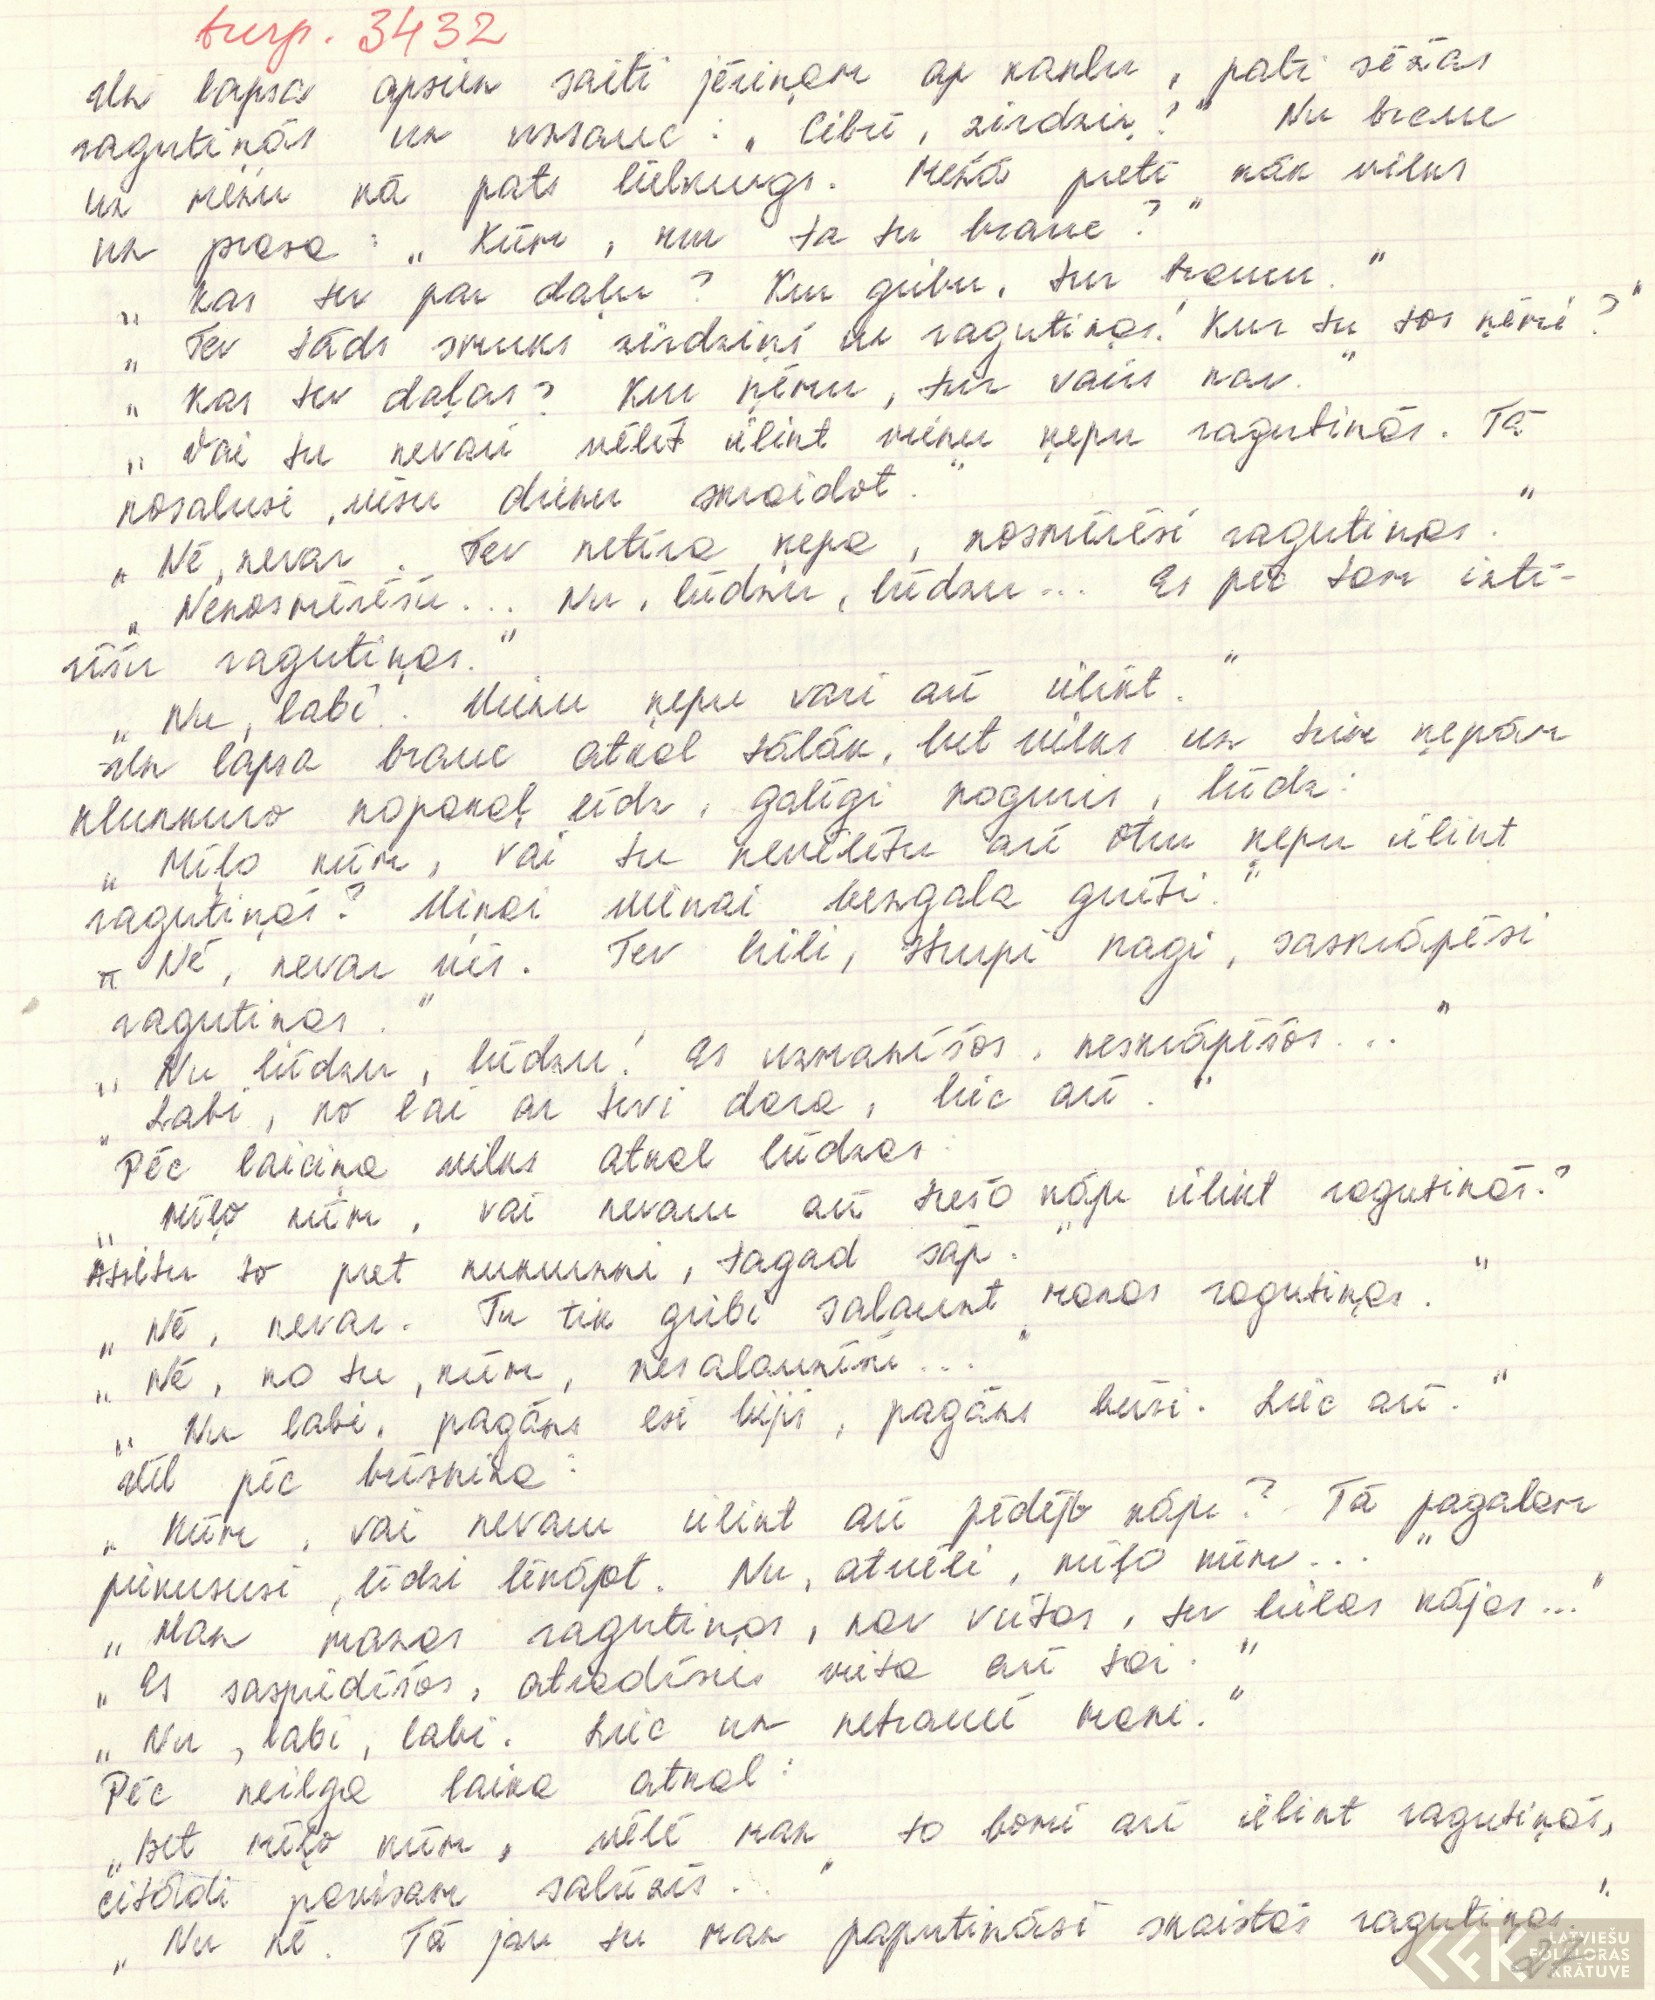 turp. 3432
Un lapsa apsien saiti jēriņam ap kaklu, pati sēžas
ragutiņās un uzsauc: „Cibū, zirdziņ!" Nu brauc
uz mežu kā pats lielkungs. Mežā pretī nāk vilks
un prasa: „Kūm, kur ta tu brauc?"
„Kas tev par daļu? Kur gribu, tur braucu."
„Tev tāds smuks zirdziņš un ragutiņas! Kur tu tos ņēmi?"
„Kas tev daļas? Kur ņēmu, tur vairs nav."
„Vai tu nevari vēlēt ielikt vienu ķepu ragutiņās. Tā
nosalusi, visu dienu skraidot."
„Nē, nevar. Tev netīra ķepa, nosmērēsi ragutiņas."
„Nenosmērēšu... Nu, lūdzu, lūdzu... Es pēc tam iztī-
rīšu ragutiņas."
„Nu, labi. Vienu ķepu vari arī ielikt."
Un lapsa brauc atkal tālāk, bet vilks uz trim ķepām
klunkuro nopakaļ līdz, galīgi noguris, lūdz:
„Mīļo kūm, vai tu nevēlētu arī otru ķepu ielikt
ragutiņās? Viņai vienai bezgala grūti."
„Nē, nevar vis. Tev lieli, strupi nagi, saskrāpēsi
ragutiņas."
„Nu lūdzu, lūdzu! Es uzmanīšos, neskrāpēšos..."
„Labi, ko lai ar tevi dara, liec arī."
Pēc laiciņa vilks atkal lūdzas:
„Mīļo kūm, vai nevaru arī trešo kāju ielikt ragutiņās?
Atsitu to pret kukurzni, tagad sāp."
„Nē, nevar. Tu tik gribi salauzt manas ragutiņas."
„Nē, ko tu, kūm, nesalauzīšu..."
„Nu labi, pagāns esi bijis, pagāns būsi. Liec arī."
Vēl pēc brīsniņa:
„Kūm, vai nevaru ielikt arī pēdējo kāju? Tā pagalam
piekususi, līdzi lēkājot. Nu, atvēli, mīļo kūm..."
„Man mazas ragutiņas, nav vietas, tev lielas kājas..."
„Es saspiedīšos, atradīsies vieta arī tai."
„Nu, labi, labi. Liec un netraucē mani."
Pēc neilga laika atkal:
„Bet mīļo kūm, vēlē man to bomi arī ielikt ragutiņās,
citādi pavisam salūzīs..."
„Nu nē. Tā jau tu man paputināsi skaistās ragutiņas."
LATVIEŠU
FOLKLORAS
KRĀTUVE